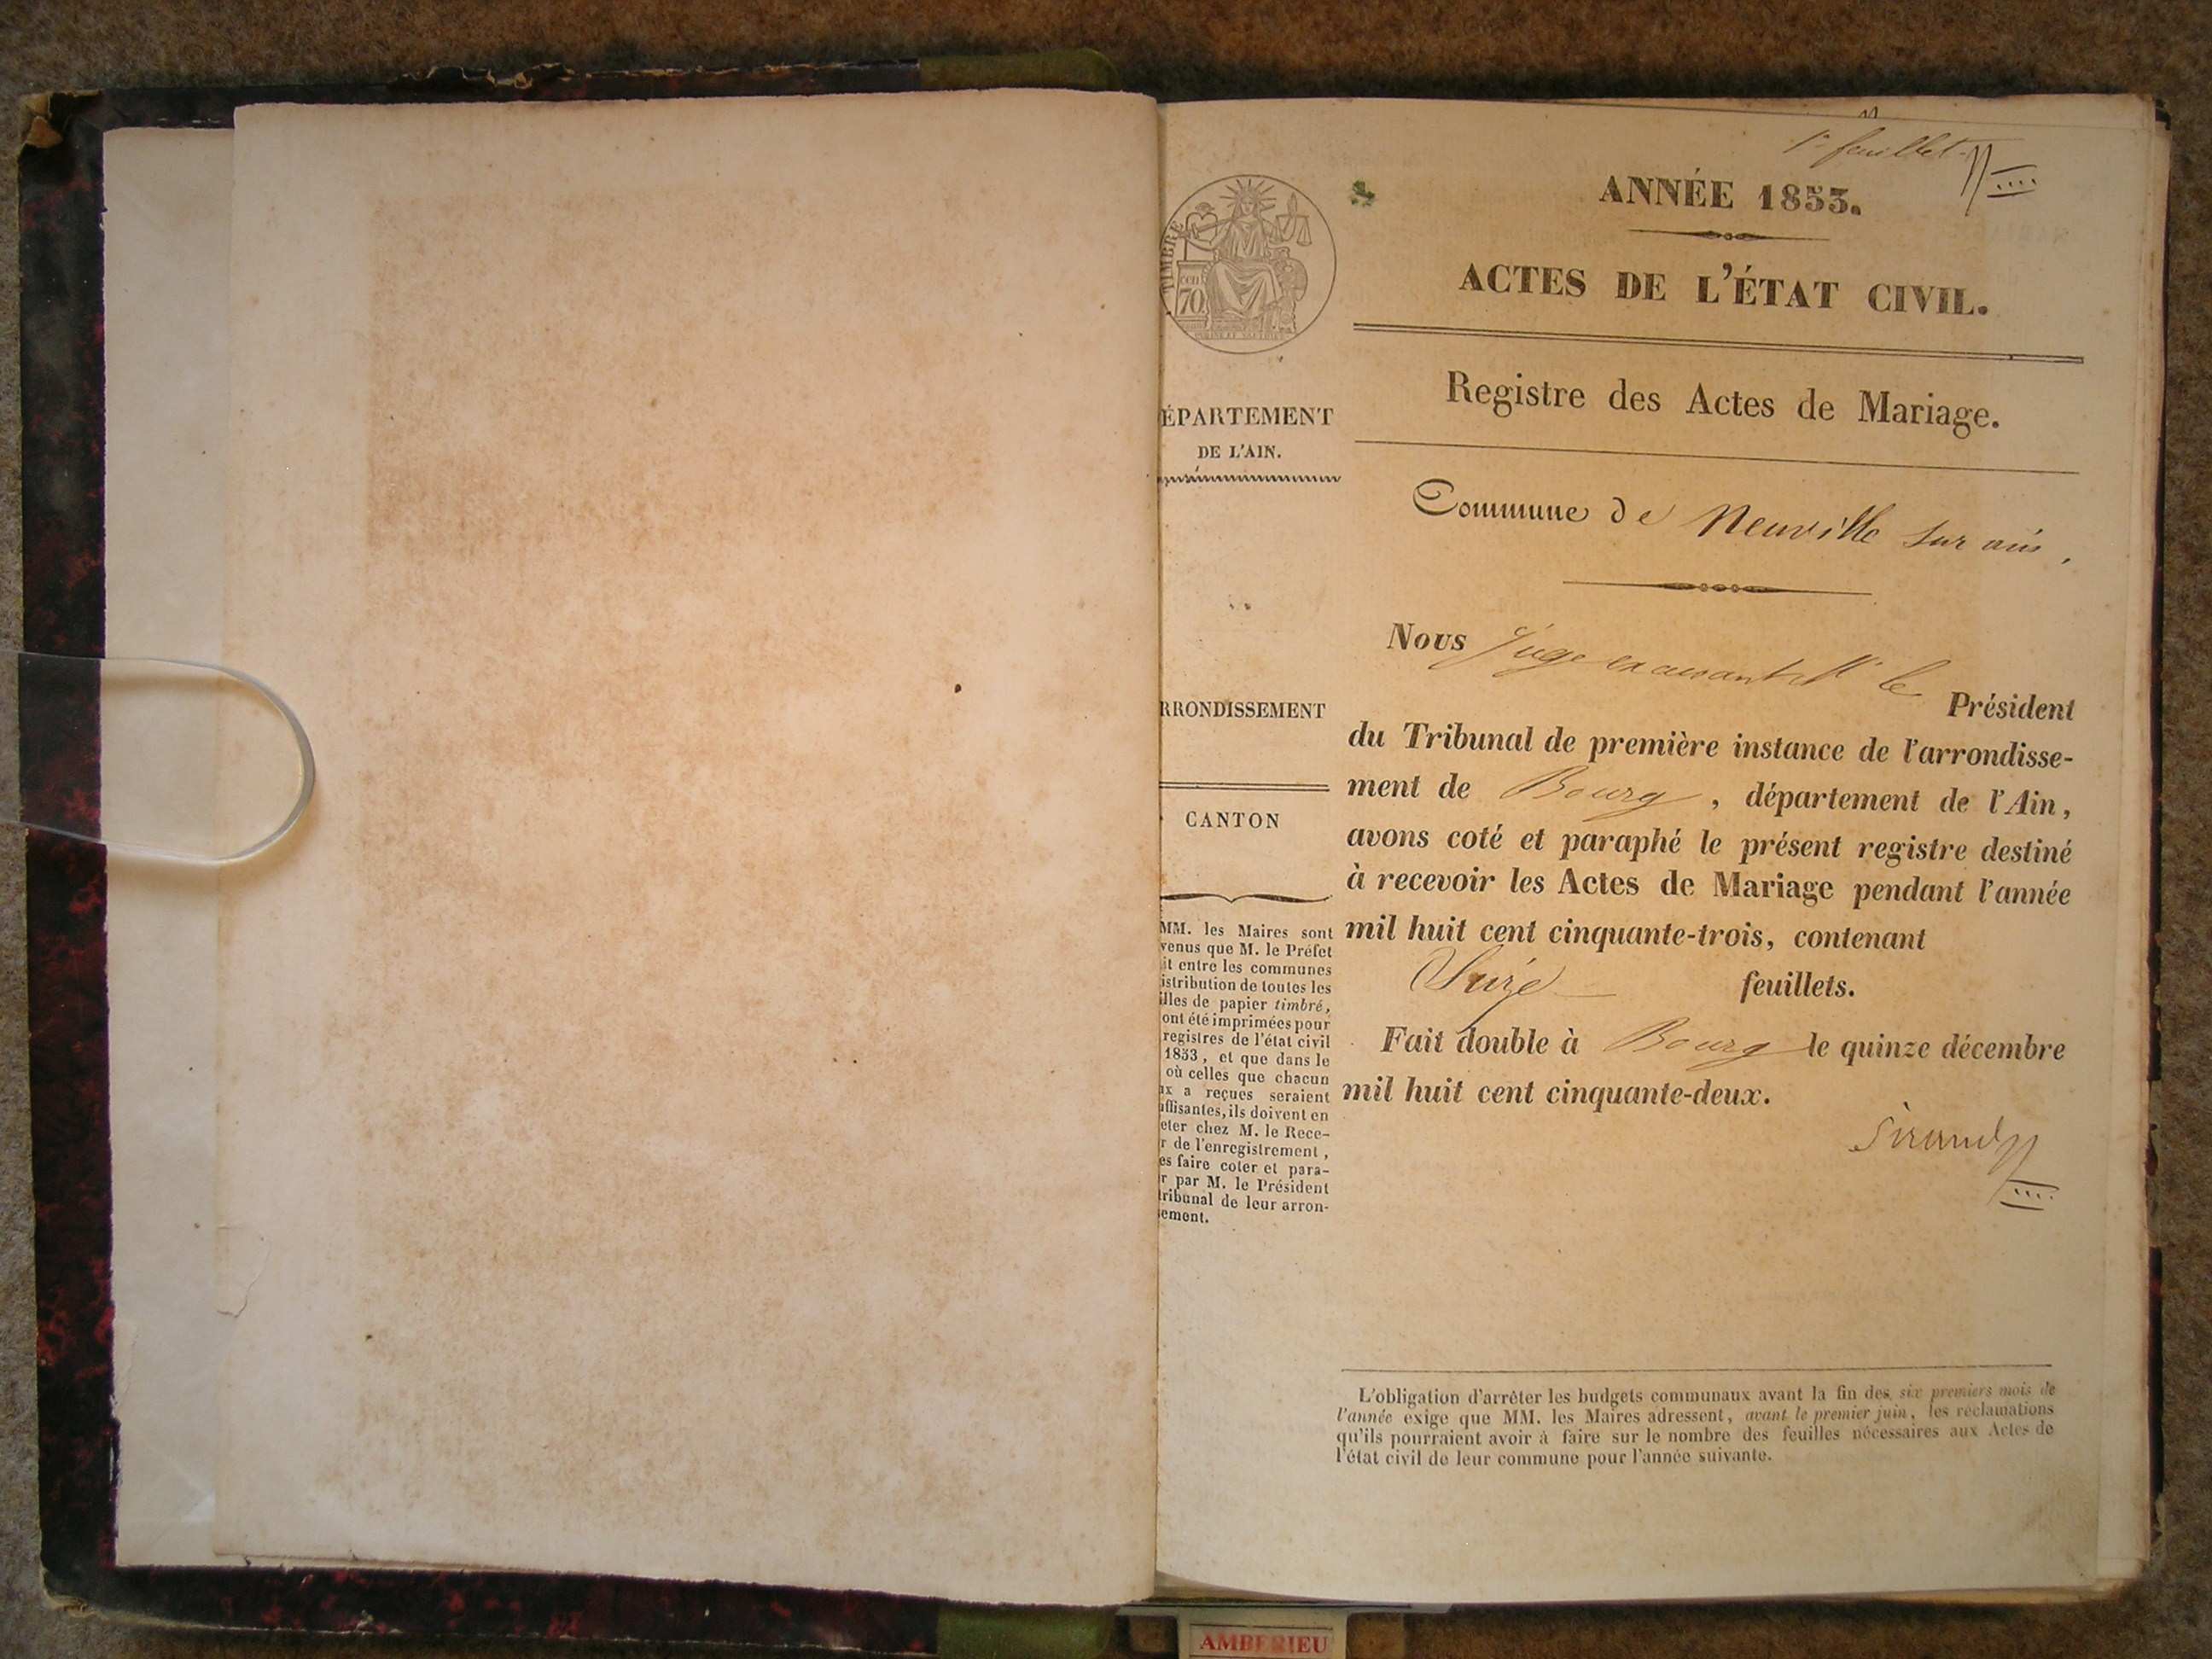 1er feuillet
ANNÉE 1853.
ACTES DE L'ÉTAT CIVIL.
Registre des Actes de Mariage.
Commune de Neuville sur ain.
Nous Juge exerçant M. le Président
du Tribunal de première instance de l'arrondisse-
ment de Bourg, département de l'Ain,
avons coté et paraphé le présent registre destiné
à recevoir les Actes de Mariage pendant l'année
mil huit cent cinquante-trois, contenant
Seize feuillets.
Fait double à Bourg le quinze décembre
mil huit cent cinquante-deux.
Sirand
L'obligation d'arrêter les budgets communaux avant la fin des six premiers mois de
l'année exige que MM. les Maires adressent, avant le premier juin, les réclamations
qu'ils pourraient avoir à faire sur le nombre des feuilles nécessaires aux Actes de
l'état civil de leur commune pour l'année suivante.
TIMBRE
70
ÉPARTEMENT
DE L'AIN.
RRONDISSEMENT
CANTON
MM. les Maires sont
venus que M. le Préfet
it entre les communes
istribution de toutes les
illes de papier timbré,
ont été imprimées pour
registres de l'état civil
1853, et que dans le
où celles que chacun
ux a reçues seraient
uffisantes, ils doivent en
eter chez M. le Rece-
r de l'enregistrement,
es faire coter et para-
r par M. le Président
tribunal de leur arron-
sement.
AMBERIEU